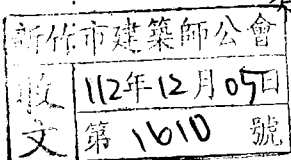 新竹市建築師公會
收文
112年12月05日
第1610號